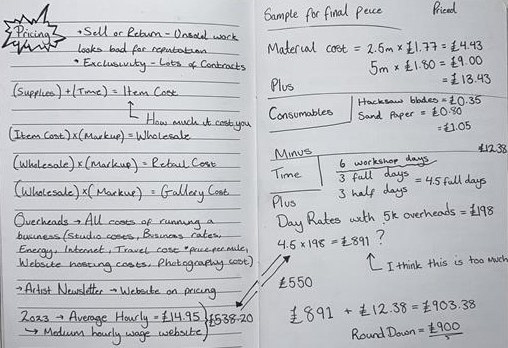 Pricing
• Sell or Return - Unsold work
looks bad for reputation
• Exclusivity - Lots of Contracts
(Supplies) + (Time) = Item Cost
How much it cost you
(Item Cost) x (Markup) = Wholesale
(Wholesale) x (Markup) = Retail Cost
(Wholesale) x (Markup) = Gallery Cost
Overheads → All costs of running a
business (Studio costs, Business rates,
Energy, Internet, Travel cost *price per mile,
Website hosting costs, Photography cost)
→ Artist Newsletter → Website on pricing
2023 → Average Hourly = £14.95 } £538.20
↳ Medium hourly wage website
Sample for final peice Priced
Material cost = 2.5m x £1.77 = £4.43
5m x £1.80 = £9.00
= £13.43
Plus
Consumables
Hacksaw blades = £0.35
Sand Paper = £0.80
= £1.05
Minus
£12.38
Time
6 workshop days
3 full days
3 half days = 4.5 full days
Plus
Day Rates with 5k overheads = £198
4.5 x 198 = £891 ?
I think this is too much
£550
£891 + £12.38 = £903.38
Round Down = £900